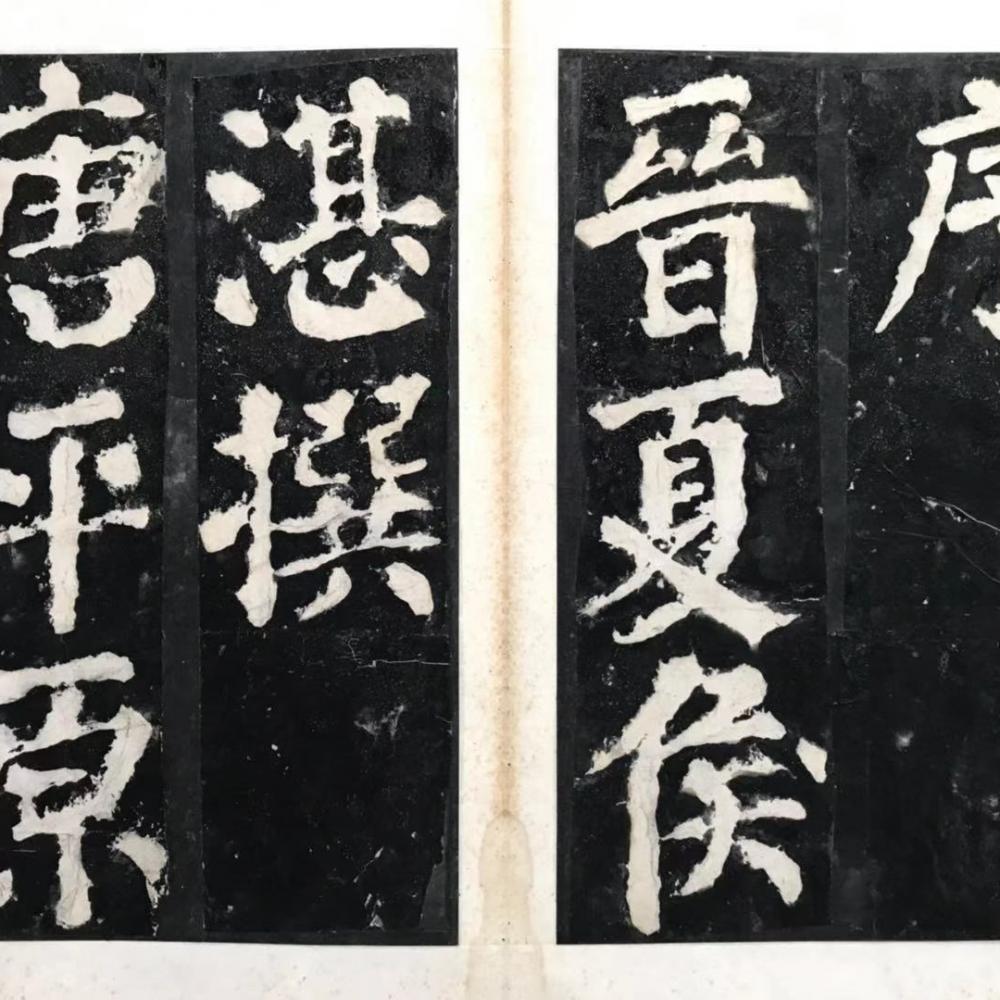 序
晉夏侯
湛撰
唐平原